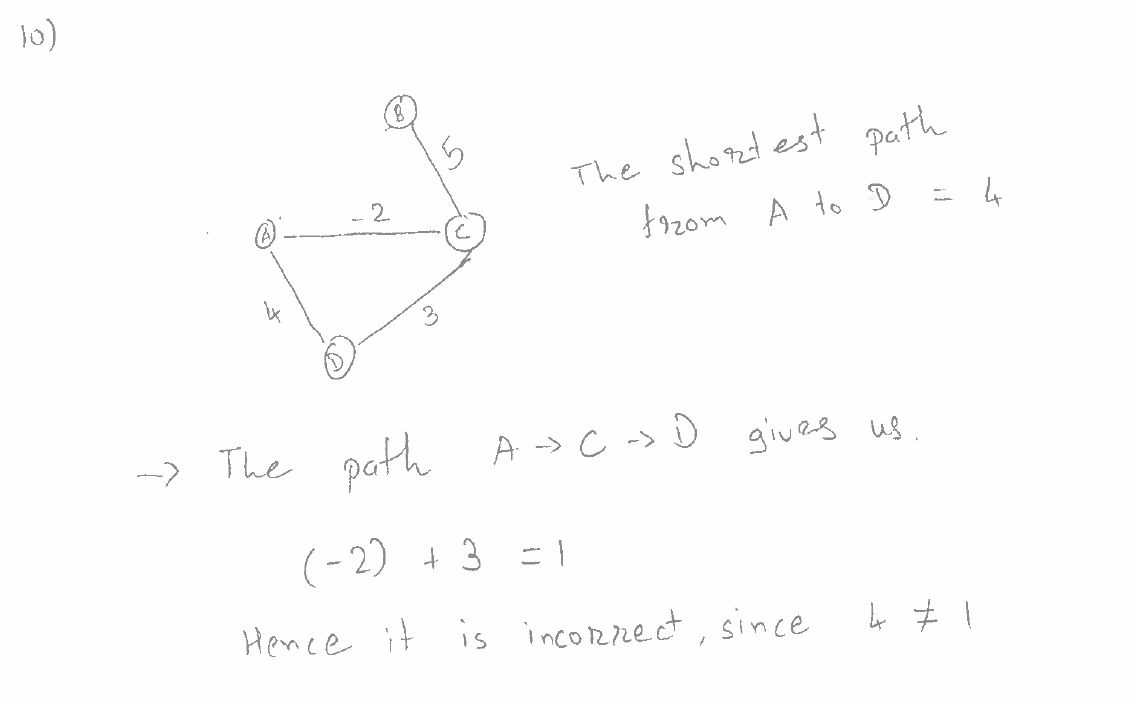 10)
B
5
The shortest path
from A to D = 4
A -2 C
4
3
D
→ The path A → C → D gives us.
(-2) + 3 = 1
Hence it is incorrect, since 4 ≠ 1